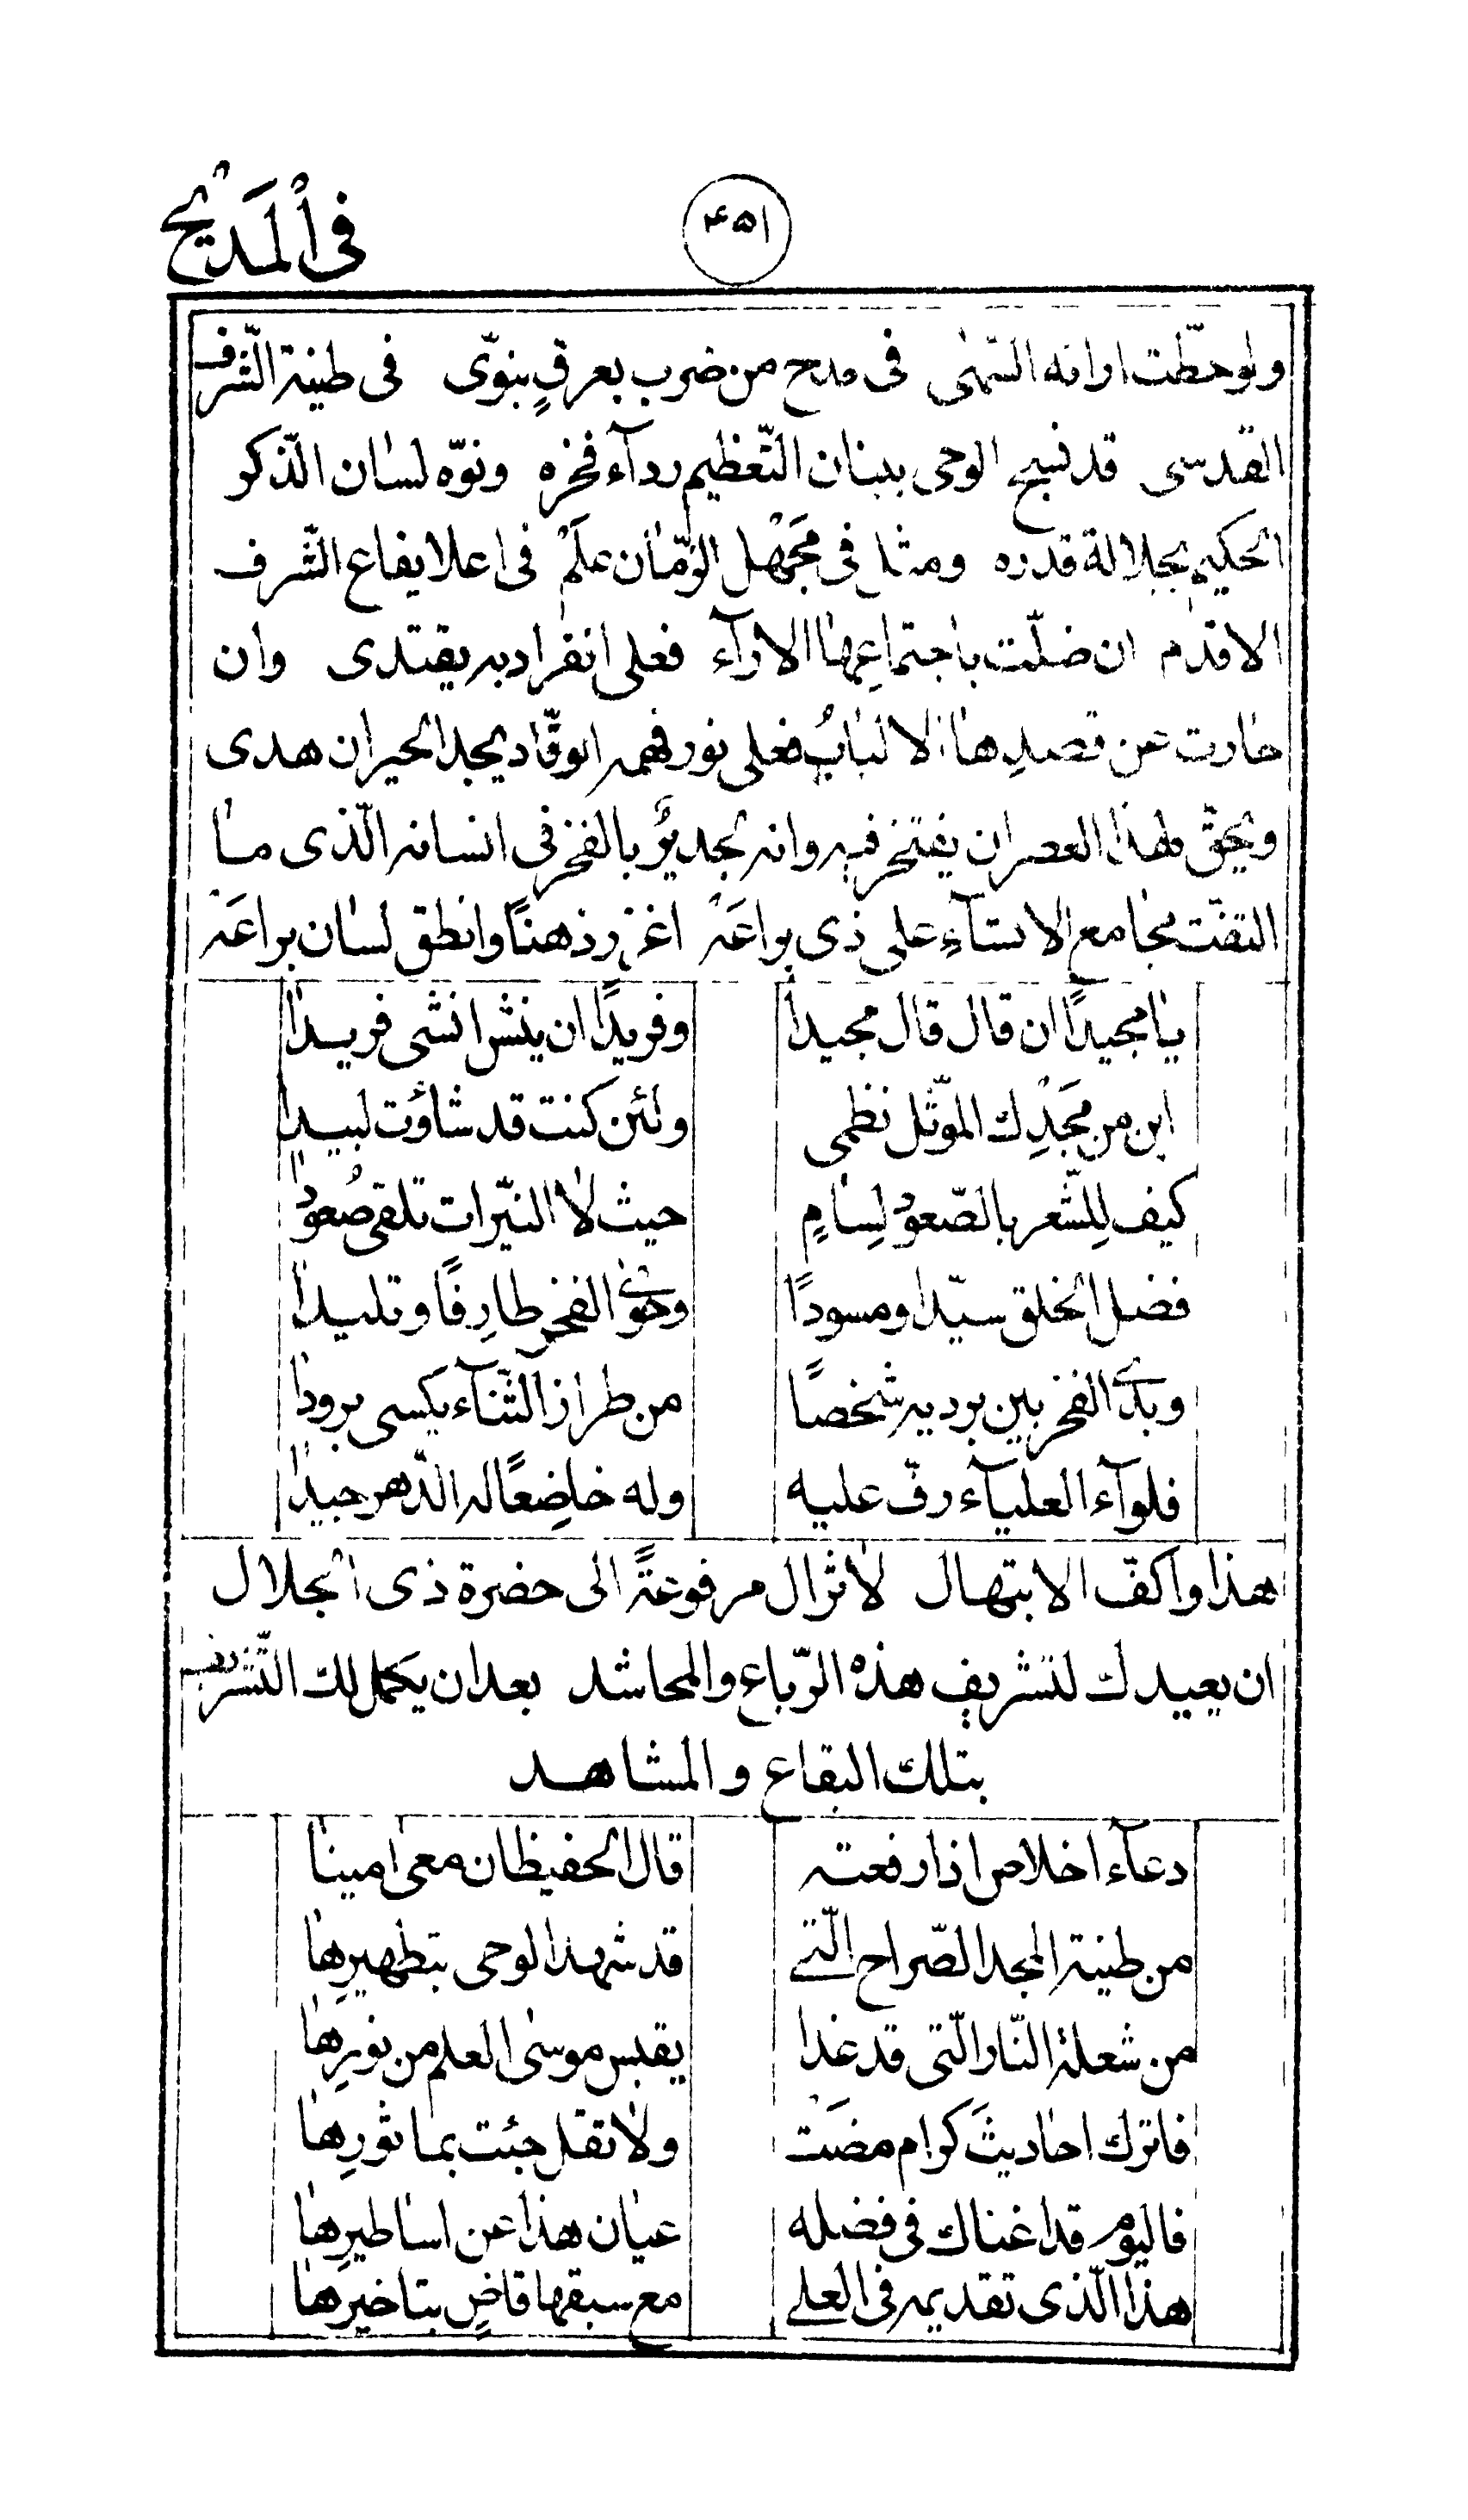 فى المَديْح
٤٥١
ولو حطّت ارانه السّهىٰ فى مدح من ضرب بعرقٍ بنوّى فى طينة الشّرف
القدسى قد نسج الوحى ببنان التّعظيم ردآء فخره ونوّه لسان الذّكر
الحكيم بجلالة قدره ومثل فى مَجْهل الزّمان علَمٌ فى اعلا يفاع الشّرف
الاقدم ان ضلّت باجتماعِها الارآء فعلى انفراد به يقتدى وان
حارت عن قصدِها الالبابُ فعلى نور فهمه الوقّاد يجد الحيران هدى
ويحقّ لهذا العصر ان يفتخر فيه وانه لجديرٌ بالفخر فى انسانه الّذى ما
التفّت مجامع الانشآءِ على ذى براعَة اغزر ذهنًا وانطق لسان براعَة
يا مجيدًا ان قال قال مجيدا
وفريدًا ان ينش انشى فريدا
اين من مَجْدِك الموثّل نظمى
ولئن كنت قد شاؤت لبيدا
كيف لِلشّعر بالصّعود لِسامٍ
حيث لا النيّرات تلقى صُعودا
فضل الخلق سيّدا ومسودًا
وحوى الفخر طارِفًا وتليدا
وبدى الفخر بين برديه شخصًا
من طراز الثّنآء يكسى برودا
فلوآء العليآء رفّ عليه
وله خاضِعًا له الدّهر جيدا
هذا واكفّ الابتهال لا تزال مرفوعةً الى حضرة ذى الجلال
ان يعيدك لتشريف هذه الرّباع والمحاشد بعد ان يكمل لك التّشريف
بتلك البقاع والمشاهد
دعآء اخلاص اذا رفعته
قال الحفيظان معى امينا
من طينة المجد الصّراح الّتى
قد شهد الوحى بتطهيرِها
من شعلة النّار الّتى قد غدا
يقبس موسىٰ العلم من نورِها
فاترك احاديثَ كرام مضَتْ
ولا تقل جئت بماثورِها
فاليوم قد اغناك فى فضله
عيان هذا عن اساطيرِها
هذا الّذى تقديمه فى العلى
مع سبقها قاضٍ بتاخيرها